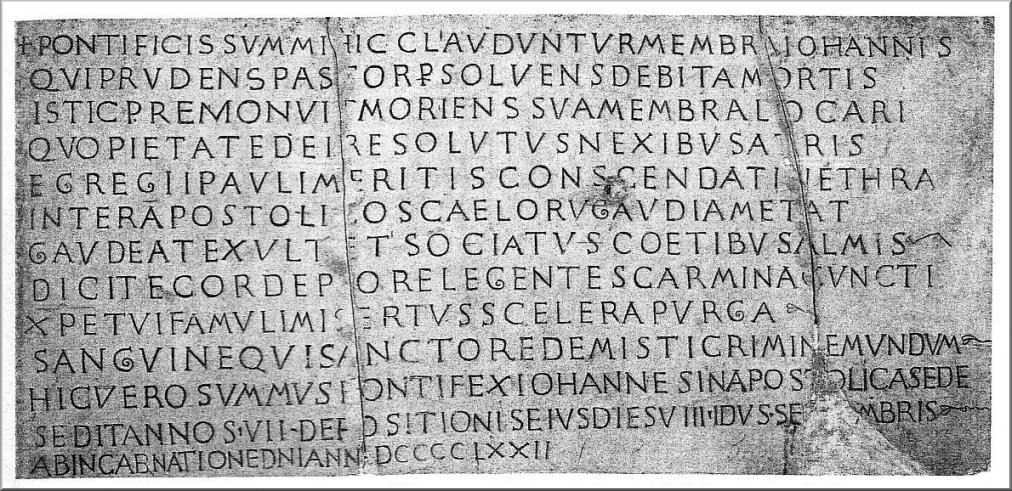 +PONTIFICIS SVMMI HIC CLAVDVNTVR MEMBRA IOHANNIS
QVI PRVDENS PASTOR P SOLVENS DEBITA MORTIS
ISTIC PREMONVIT MORIENS SVA MEMBRA LOCARI
QVO PIETATE DEI RESOLVTVS NEXIBVS ATRIS
EGREGII PAVLI MERITIS CONSCENDAT IN ETHRA
INTER APOSTOLICOS CAELORV GAVDIA METAT
GAVDEAT EXVLTET SOCIATVS COETIBVS ALMIS
DICITE CORDE PIO RELEGENTES CARMINA CVNCTI
XPE TVI FAMVLI MISERTVS SCELERA PVRGA
SANGVINE QVI SANCTO REDEMISTI CRIMINE MVNDVM
HIC VERO SVMMVS PONTIFEX IOHANNES IN APOSTOLICA SEDE
SEDIT ANNOS·VII·DEPOSITIONIS EIVS DIES VIII·IDVS·SETEMBRIS
AB INCARNATIONE DNI ANN·DCCCCLXXII